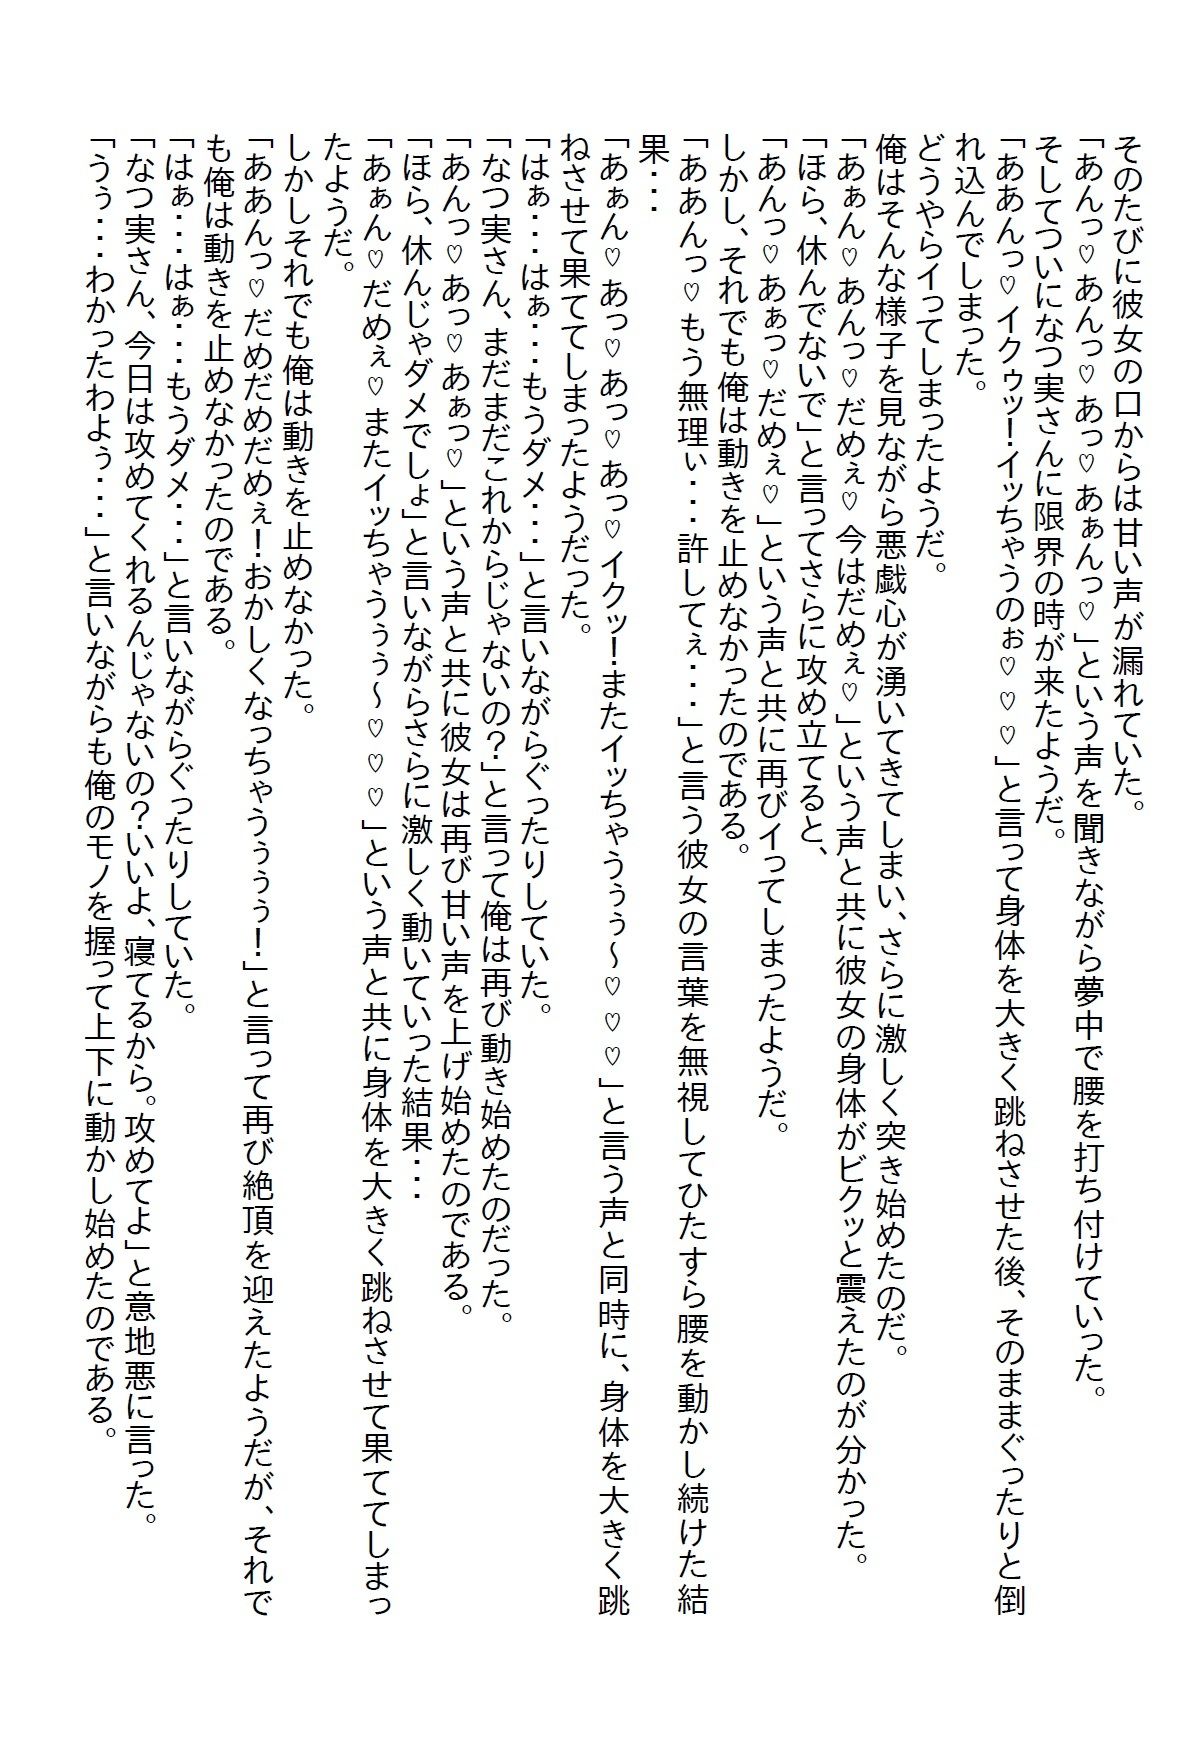 そのたびに彼女の口からは甘い声が漏れていた。
「あんっ♡あんっ♡あっ♡あぁんっ♡」という声を聞きながら夢中で腰を打ち付けていった。
そしてついになつ実さんに限界の時が来たようだ。
「ああんっ♡イクゥッ！イッちゃうのぉ♡♡♡」と言って身体を大きく跳ねさせた後、そのままぐったりと倒
れ込んでしまった。
どうやらイってしまったようだ。
俺はそんな様子を見ながら悪戯心が湧いてきてしまい、さらに激しく突き始めたのだ。
「あぁん♡あんっ♡だめぇ♡今はだめぇ♡」という声と共に彼女の身体がビクッと震えたのが分かった。
「ほら、休んでないで」と言ってさらに攻め立てると、
「あんっ♡あぁっ♡だめぇ♡」という声と共に再びイってしまったようだ。
しかし、それでも俺は動きを止めなかったのである。
「ああんっ♡もう無理ぃ・・・許してぇ・・・」と言う彼女の言葉を無視してひたすら腰を動かし続けた結
果・・・
「あぁん♡あっ♡あっ♡あっ♡イクッ！またイッちゃうぅぅ～♡♡♡」と言う声と同時に、身体を大きく跳
ねさせて果ててしまったようだった。
「はぁ・・・はぁ・・・もうダメ・・・」と言いながらぐったりしていた。
「なつ実さん、まだまだこれからじゃないの？」と言って俺は再び動き始めたのだった。
「あんっ♡あっ♡あぁっ♡」という声と共に彼女は再び甘い声を上げ始めたのである。
「ほら、休んじゃダメでしょ」と言いながらさらに激しく動いていった結果・・・
「あぁん♡だめぇ♡またイッちゃうぅぅ～♡♡♡」という声と共に身体を大きく跳ねさせて果ててしまっ
たようだ。
しかしそれでも俺は動きを止めなかった。
「ああんっ♡だめだめだめぇ！おかしくなっちゃうぅぅぅ！」と言って再び絶頂を迎えたようだが、それで
も俺は動きを止めなかったのである。
「はぁ・・・はぁ・・・もうダメ・・・」と言いながらぐったりしていた。
「なつ実さん、今日は攻めてくれるんじゃないの？いいよ、寝てるから。攻めてよ」と意地悪に言った。
「うぅ・・・わかったわよぅ・・・」と言いながらも俺のモノを握って上下に動かし始めたのである。